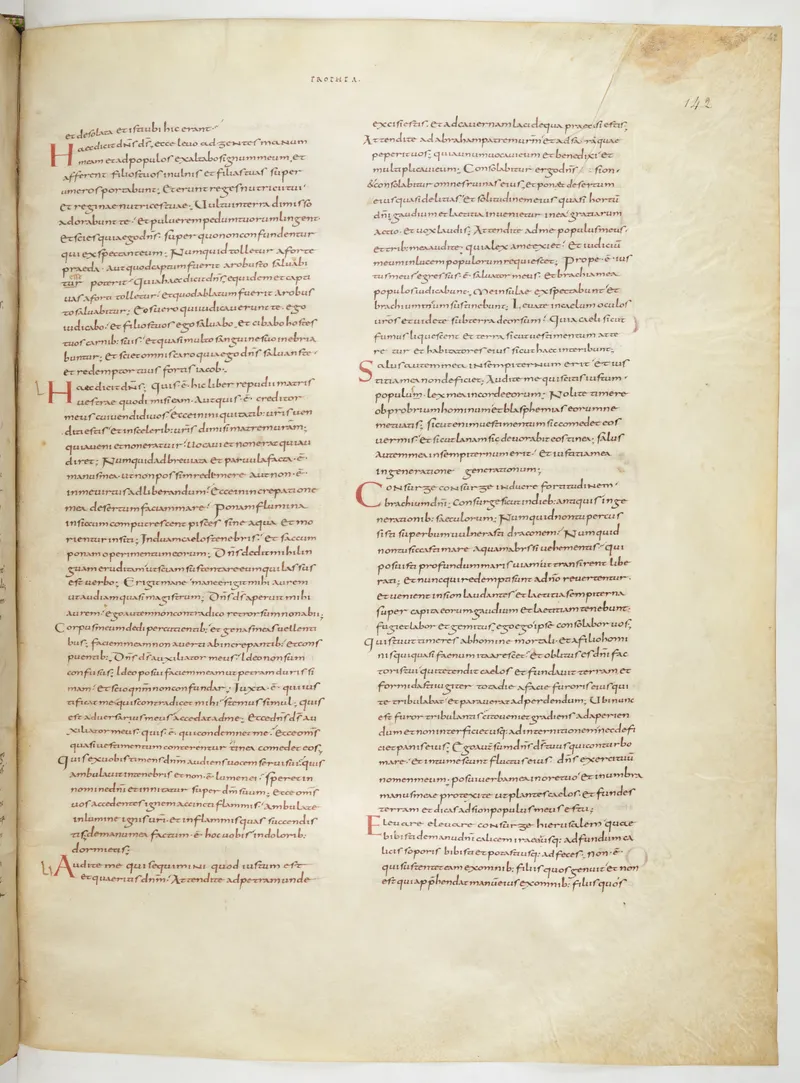 142
et desolata et isti ubi hic erant·
Haec dicit dñs d̄s, ecce levo ad gentes manum
meam et ad populos exaltabo signum meum, et
afferent filios tuos in ulnis et filias tuas super
umeros portabunt; Et erunt reges nutricii tui·
et reginae nutrices tuae· Vultu in terra dimisso
adorabunt te· et pulverem pedum tuorum lingent·
et scies quia ego dñs· super quo non confundentur
qui expectant eum; Numquid tolletur a forte
praeda· aut quod captum fuerit a robusto salvari
poterit· quia haec dicit dñs· equidem et capti
vitas a forti tolletur· et quod ablatum fuerit a robus
to salvabitur· Eos vero qui iudicaverunt te· ego
iudicabo· et filios tuos ego salvabo· et cibabo hostes
tuos carnib; suis· et quasi musto sanguine suo inebria
buntur; et sciet omnis caro quia ego dñs salvans te·
et redemptor tuus fortis iacob·
Haec dicit dñs· quis ē hic liber repudii matris
vestrae quo dimisi eam· Aut quis ē creditor
meus cui vendidi vos· Ecce in iniquitatib; vr̄is ven
diti estis· et in scelerib; vr̄is dimisi matrem vr̄am;
quia veni et non erat vir· vocavi et non erat qui au
diret; Numquid adbreviata et parvula facta ē
manus mea ut non possim redimere· aut non ē
in me virtus ad liberandum· Ecce in increpatione
mea desertum faciam mare· Ponam flumina
in siccum conputrescent pisces sine aqua· Et mo
rientur in siti; Induam caelos tenebris· et saccum
ponam operimentum eorum; Dñs dedit mihi lin
guam eruditam ut sciam sustentare eum qui lassus
est verbo; Erigit mane· mane erigit mihi aurem
ut audiam quasi magistrum; Dñs d̄s aperuit mihi
aurem· ego autem non contradico retrorsum non abii;
Corpus meum dedi percutientib; et genas meas vellenti
bus; faciem meam non averti ab increpantib; et consp
puentib; Dñs d̄s auxiliator meus· Ideo non sum
confusus; Ideo posui faciem meam ut petram durissi
mam· et scio qñm non confundar; Iuxta ē qui ius
tificat me quis contradicet mihi· stemus simul· quis
est adversarius meus accedat ad me; Ecce dñs d̄s au
xiliator meus· quis ē qui condemnet me· Ecce omñs
quasi vestimentum conterentur tinea comedet eos;
Quis ex vobis timens dñm audiens vocem servi sui· quis
ambulavit in tenebris et non ē lumen ei· speret in
nomine dñi et innitatur super dm̄ suum; Ecce om̄s
vos accendentes ignem accincti flammis· Ambulate
in lumine ignis vr̄i· et in flammis quas succendis
tis; de manu mea factum ē hoc vobis in dolorib;
dormietis;
Audite me qui sequimini quod iustum est
et quaeritis dñm· Attendite ad petram unde
excisi estis· et ad cavernam laci de qua praecisi estis;
Attendite ad abraham patrem vrm̄ et ad sarram quae
peperit vos; quia unum vocavi eum et benedixi ei et
multiplicavi eum; Consolabitur ergo dñs sion·
& consolabitur omnes ruinas eius; et ponet desertum
eius quasi delitias· et solitudinem eius quasi hortū
dñi; gaudium et laetitia invenietur in ea· gratiarum
actio· et vox laudis; Attendite ad me populus meus·
et trib; mea audite· quia lex a me exiet· et iudiciū
meum in lucem populorum requiescet; Prope ē ius
tus meus egressus ē salvator meus· et brachia mea
populos iudicabunt· Me insulae expectabunt et
brachium m̄m sustinebunt; Levate in caelum oculos
vr̄os et videte sub terra deorsum· Quia caeli sicut
fumus liquescent et terra sicut vestimentum atte
re tur et habitatores eius sicut haec interibunt;
Salus autem mea in sempiternum erit· et ius
titia mea non deficiet; Audite me qui scitis iustum·
populum· lex mea in corde eorum; Nolite timere
obprobrium hominum et blasphemias eorum ne
metuatis; sicut enim vestimentum sic comedet eos
vermis· et sicut lanam sic devorabit eos tinea; Salus
autem mea in sempiternum erit· et iustitia mea
in generatione generationum;
Consurge consurge induere fortitudinem·
brachium dñi; Consurge sicut in dieb; antiquis in ge
nerationib; saeculorum; Numquid non tu percus
sisti superbum vulnerasti draconem· Numquid
non tu siccasti mare aquam abyssi vehementis· qui
posuisti profundum maris viam ut transirent libe
rati; et nunc qui redempti sunt a dño revertentur·
et venient in sion laudantes et laetitia sempiterna
super capita eorum gaudium et laetitiam tenebunt·
fugiet dolor et gemitus; ego ego ipse consolabor vos;
quis tu ut timeres ab homine mortali· et a filio homi
nis qui quasi faenum ita arescet· et oblitus es dñi fac
toris tui qui tetendit caelos et fundavit terram et
formidasti iugiter tota die a facie furoris eius qui
te tribulabat et paraverat ad perdendum; Ubi nunc
est furor tribulantis cito veniet gradiens ad aperien
dum et non interficiet usq; ad internetionem nec defi
ciet panis eius; Ego aut̄ sum dñs d̄s tuus qui conturbo
mare· et intumescunt fluctus eius· dñs exercituū
nomen meum; posui verba mea in ore tuo· et in umbra
manus meae protexi te ut plantes caelos· et fundes
terram et dicas ad sion populus meus es tu;
Elevare elevare consurge hierusalem quae
bibisti de manu dñi calicem irae eius; usq; ad fundum ca
licis soporis bibisti et potasti usq; ad feces; Non ē
qui sustentet eam ex omnib; filiis quos genuit· et non
est qui apphendat manū eius ex omnib; filiis quos